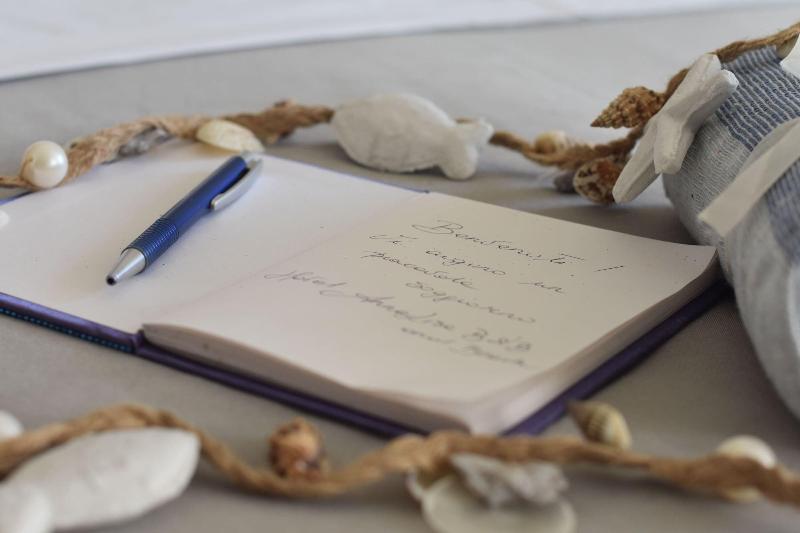 Benvenuti!
Ti auguro un
piacevole soggiorno
Hotel B&B
and